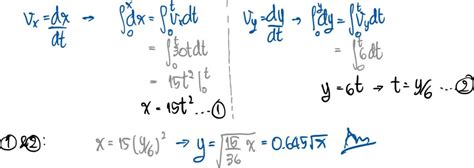 Vₓ = dx/dt → ∫₀ˣ dx = ∫₀ᵗ Vₓdt
= ∫₀ᵗ 30t dt
= 15t² |₀ᵗ
x = 15t² ... ①
V_y = dy/dt → ∫₀ʸ dy = ∫₀ᵗ V_y dt
= ∫₀ᵗ 6 dt
y = 6t → t = y/6 ... ②
① & ②: x = 15(y/6)² → y = √(15/36 x) = 0.645√x Ans